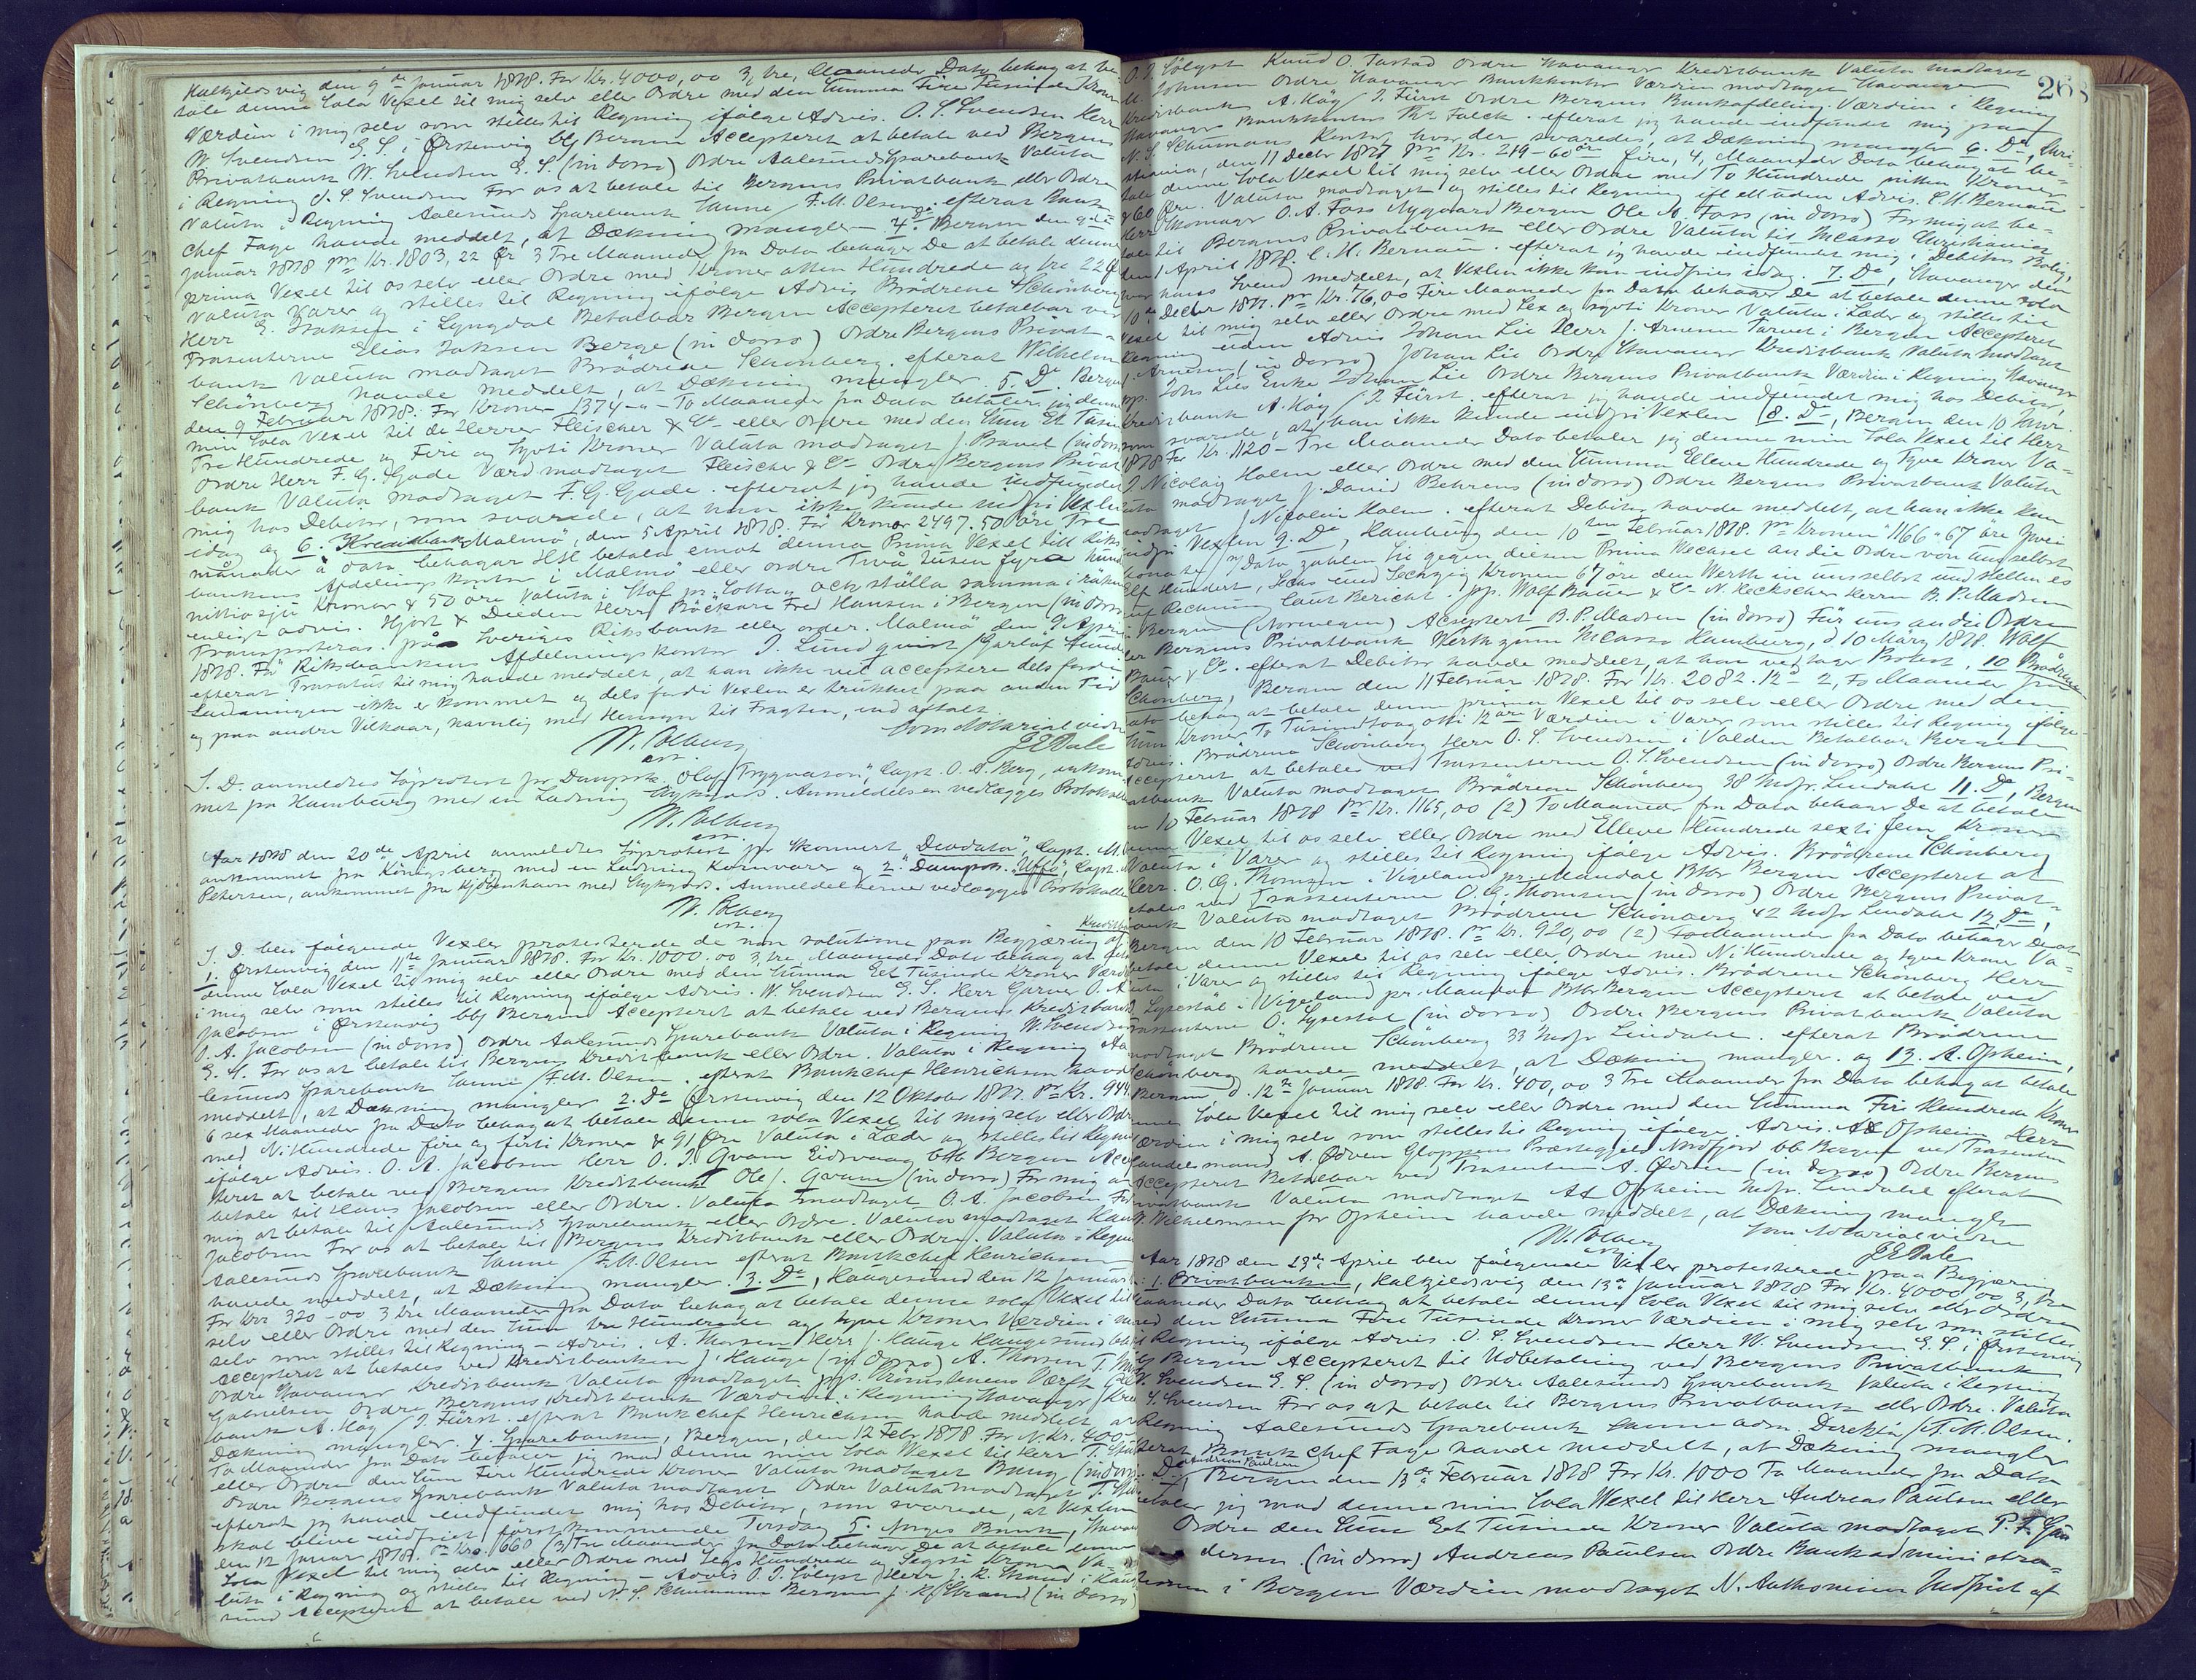 Kalkjildsvig den 9de Januar 1878. For Kr. 4000,00 3, tre, Maaneder Dato behag at be-
tale denne Sola Vexel til mig selv eller Ordre med den Summa Fire Tusinde Kroner
Værdien i mig selv som stilles til Regning ifølge Advis. O. S. Svendsen Herr
W. Svendsen E. S. i Ørstenvig bbg Bergen Accepteret at betale ved Bergens
Privatbank W. Svendsen E. S. (in dorso) Ordre Aalesunds Sparebank Valuta
i Regning O. S. Svendsen For os at betale til Bergens Privatbank eller Ordre
Valuta i Regning Aalesunds Sparebank Sanne / F. M. Olsen. efterat Bank
Chef Faye havde meddelt, at Dækning mangler - 4. Bergen den 9de
Januar 1878 pr Kr. 1803,22 Ør 3 Tre Maaneder fra Dato behager De at betale denne
prima Vexel til os selv eller Ordre med Kroner atten Hundrede og tre 22 Ø
Valuta Varer og stilles til Regning ifølge Advis Brødrene Schönberg
Herr E. Jaksen i Lyngdal Betalbar Bergen Accepteret betalbar ved
Trasenterne Elias Jaksen Berge (in dorso) Ordre Bergens Privat-
bank Valuta modtaget Brødrene Schönberg. efterat Wilhelm
Schönberg havde meddelt, at Dækning mangler. 5. Do Bergen
den 9 Februar 1878. For Kroner 1374 - " - To Maaneder fra Dato betaler jeg denne
min Sola Vexel til de Herrer Fleischer & Co eller Ordre med den Sum Et Tusin
Tre Hundrede og Fire og Syvti Kroner Valuta modtaget J. Bauel (in dorso
Ordre Herr F. G. Gade Værd modtaget Fleischer & Co Ordre Bergens Privat
bank Valuta modtaget F. G. Gade. efterat jeg havde indfundet
mig hos Debitor, som svarede, at han ikke kunde indfri Vexlen
idag og 6. Kreditbank Malmö, den 5 April 1878. För Kronor 2497.50 öre Tre
månader à dato behagar HH betala emot denna Prima Vexel till Riks
bankens Afdelningskontor i Malmö eller ordre Två tusen fyra hund
nittiosju Kronor & 50 öre Valuta i Staf pr "Lotta" och ställa samma i räkn
enligt advis. Hjort & Dieden Herrn Bäckare Fred Hansen i Bergen (in dorso
Transporteras på Sveriges Riksbank eller order. Malmö den 9 April
1878. För Riksbankens Afdelningskontor J. Lundquist / Garlöf Sunde
efterat Trassatus til mig havde meddelt, at han ikke vil acceptere dels fordi
Ladningen ikke er kommet og dels fordi Vexlen er trukket paa anden Tid
og paa andre Vilkaar, navnlig med Hensyn til Fragten, end aftalt
W. Colberg Som Notarialvidne
css. J E Dale
S. D. anmeldtes Søprotest pr Dampsk. "Olaf Trygvason", Capt. O. A. Berg, ankom-
met fra Hamburg med en Ladning Stykgods. Anmeldelsen vedlægges Protokollen
W. Colberg
css.
Aar 1878 den 20de April anmeldtes Søprotest pr Skonnert "Deodata", Capt. M.
ankommet fra Königsberg med en Ladning Kornvarer og 2. Dampsk. "Uffo", Capt.
Petersen, ankommet fra Kjøbenhavn med Stykgods. Anmeldelserne vedlægges Protokollen
W. Colberg
css.
Kreditban
S. D. blev følgende Vexler protesterede de non solutione paa Begjæring af
1. Ørstenvig den 11te Januar 1878. For Kr. 1000.00 3, tre, Maaneder Dato behag at bet
denne Sola Vexel til mig selv eller Ordre med den Summa Eet Tusinde Kroner Værd
i mig selv som stilles til Regning ifølge Advis. W. Svendsen E. S. Herr Garver O. A.
Jacobsen i Ørstenvig bbg Bergen Accepteret at betale ved Bergens Kreditbank
O. A. Jacobsen (in dorso) Ordre Aalesunds Sparebank Valuta i Regning W. Svendsen
E. S. For os at betale til Bergens Kreditbank eller Ordre. Valuta i Regning Aa-
lesunds Sparebank Sanne / F. M. Olsen. efterat Bankchef Henrichsen havde
meddelt, at Dækning mangler 2. Do Ørstenvig den 12 Oktober 1877. Pr Kr. 944
6 sex Maaneder fra Dato behag at betale denne sola Vexel til mig selv eller Ordr
med Ni Hundrede fire og firti Kroner & 91 Øre Valuta i Læder og stilles til Regnin
ifølge Advis. O. A. Jacobsen Herr O. J. Qvam Eidsvaag bbg Bergen Accep
teret at betale ved Bergens Kreditbank Ole J. Qvam (in dorso) For mig at
betale til Hans Jacobsen eller Ordre. Valuta modtaget O. A. Jacobsen For
mig at betale til Aalesunds Sparebank eller Ordre. Valuta modtaget Hans
Jacobsen For os at betale til Bergens Kreditbank eller Ordre. Valuta i Regnin
Aalesunds Sparebank Sanne / F. M. Olsen efterat Bankchef Henrichsen
havde meddelt, at Dækning mangler. 3. Do, Haugesund den 12 Januar
For Kr 320-00 3 tre Maaneder fra Dato behag at betale denne sola Vexel til
selv eller Ordre med den Sum tre Hundrede og tyve Kroner Værdien i m
selv som stilles til Regning - Advis. A. Thorsen Herr J. Hauge Haugesund bbg
Accepteret at betales ved Kreditbanken J. Hauge (in dorso) A. Thorsen T.
Ordre Stavanger Kreditbank Valuta modtaget pp. Værft
Gabrielsen Ordre Bergens Kreditbank Værdien i Regning Stavanger Kredit
bank A. Køg / J. Fürst. efterat Bankchef Henrichsen havde meddelt, at
Dækning mangler. 4. Sparebanken, Bergen, den 12 Febr 1878. For N. Kr. 400-
To Maaneder fra Dato betaler jeg mod denne min Sola Vexel til Herr T.
eller Ordre den Sum Fire Hundrede Kroner Valuta modtaget Bang (in dorso
Ordre Bergens Sparebank Valuta modtaget Ordre Valuta modtaget
efterat jeg havde indfundet mig hos Debitor, som svarede, at Vexlen
skal blive indfriet førstkommende Tirsdag 5. Norges Bank, Stavan
den 12 Januar 1878. pr Kr. 660 (3) Tre Maaneder fra Dato behager De at betale denne
Sola Vexel til mig selv eller Ordre med Sex Hundrede og Segsti Kroner Va-
luta i Regning og stilles til Regning - Advis O. J. Sølyst Herr J. K. Strand i Hauge
sund Accepteret at betale ved N. S. Schumann Bergen J. K. Strand (in dorso)
268
O. J. Sølyst Knud O. Tastad Ordre Stavanger Kreditbank Valuta modtaget
M. Johnsen Ordre Stavanger Bankkontor Værdien modtaget Stavanger
Kreditbank A. Køg / J. Fürst Ordre Bergens Bankafdeling. Værdien i Regning
Stavanger Bankkontor Th. Falck. efterat jeg havde indfundet mig paa
N. S. Schumans Kontor, hvor der svaredes, at Dækning mangler 6. Do, Chri-
stiania, den 11 Decbr 1877 pr Kr. 219-60 øre fire, 4, Maaneder Dato behag at be-
tale denne Sola Vexel til mig selv eller Ordre med To Hundrede nitten Kroner
& 60 Øre. Valuta modtaget og stilles til Regning ifl ell uden Advis. C. H. Bernau
Herr Skomager O. A. Foss Nygaard Bergen Ole A. Foss (in dorso) For mig at be-
tale til Bergens Privatbank eller Ordre Valuta til Incasso Christiania
den 1 April 1878. C. H. Bernau. efterat jeg havde indfundet mig i Debitors Bolig,
hvor hans Svend meddelte, at Vexlen ikke kan indfries idag. 7. Do, Stavanger den
10de Decbr 1877. pr Kr. 76,00 Fire Maaneder fra Dato behager De at betale denne sola
Vexel til mig selv eller Ordre med Sex og Syvti Kroner Valuta i Læder og stilles til
Regning uden Advis Johan Lie Herr J. Arnesen Torvet i Bergen Accepteret
J. Arnesen (in dorso) Johan Lie Ordre Stavanger Kreditbank Valuta modtaget
pp. Johs Lies Enke Johan Lie Ordre Bergens Privatbank Værdien i Regning Stavanger
Kreditbank A. Køg / J. Fürst. efterat jeg havde indfundet mig hos Debitor,
som svarede, at han ikke kunde indfri Vexlen 8. Do, Bergen den 10 Janr.
1878 For Kr. 1120 - Tre Maaneder Dato betaler jeg denne min Sola Vexel til Herr
J. Nicolay Holm eller Ordre med den Summa Elleve Hundrede og Tyve Kroner Va-
luta modtaget J. David Behrens (in dorso) Ordre Bergens Privatbank Valuta
modtaget J. Nicolai Holm. efterat Debitor havde meddelt, at han ikke kan
indfri Vexlen 9. Do, Hamburg den 10ten Februar 1878. pr Kronen "1166" 67 öre Zwei
Monate n/ Dato zahlen Sie gegen diesen Prima Wechsel an die Ordre von uns selbst
Elf Hundert, Sechs und Sechzig Kronen 67 öre den Werth in uns selbst und stellen es
auf Rechnung laut Bericht. pp. Wolf Bauer & Co N. Heckscher Herrn B. P. Madsen
Bergen (Norwegen) Acceptert B. P. Madsen (in dorso) Für uns an die Ordre
der Bergens Privatbank Werth zum Incasso Hamburg, d 10 März 1878. Wolf
Bauer & Co. efterat Debitor havde meddelt, at han vedtager Protest 10 Brødrene
Schönberg, Bergen den 11 Februar 1878. For Kr. 2082.12ø 2, To Maaneder fra
Dato behag at betale denne prima Vexel til os selv eller Ordre med den
Sum Kroner To Tusindtoogotti 12 øre Værdien i Varer som stilles til Regning ifølge
Advis. Brødrene Schönberg Herr O. S. Svendsen i Volden Betalbar Bergen
Accepteret at betales ved Trassenterne O. S. Svendsen (in dorso) Ordre Bergens Pri-
vatbank Valuta modtaget Brødrene Schönberg 38 Indfr. Lindahl 11. Do, Bergen
den 10 Februar 1878 Pr Kr. 1165,00 (2) To Maaneder fra Dato behager De at betale
denne Vexel til os selv eller Ordre med Elleve Hundrede sexti fem Kroner
Valuta i Varer og stilles til Regning ifølge Advis. Brødrene Schönberg
Herr. O. G. Thomsen i Vigeland pr. Mandal Btbr Bergen Accepteret at
betales ved Trassenterne O. G. Thomsen (in dorso) Ordre Bergens Privat-
bank Valuta modtaget Brødrene Schönberg 42 Indfr Lindahl 12. Do,
Bergen den 10 Februar 1878. pr Kr. 920,00 (2) To Maaneder fra Dato behager De at
betale denne Vexel til os selv eller Ordre med Ni Hundrede og tyve Kroner Va-
luta i Varer og stilles til Regning ifølge Advis. Brødrene Schönberg Herr
O. Lysestøl i Vigeland pr. Mandal Btbr Bergen Accepteret at betale ved
Trassenterne O. Lysestøl (in dorso) Ordre Bergens Privatbank Valuta
modtaget Brødrene Schönberg 33 Indfr Lindahl. efterat Brødrene
Schönberg havde meddelt, at Dækning mangler. og 13. A. Opheim,
Bergen, d. 12te Januar 1878. For Kr. 400,00 3 Tre Maaneder fra Dato behag at betale
denne Sola Vexel til mig selv eller Ordre med den Summa Fire Hundrede Kroner
Værdien i mig selv som stilles til Regning ifølge Advis. AE Opheim Herr
Landelsmand A. Ødven Gloppens Præstegjeld Nordfjord bb Bergen ved Trasenten
Accepteret Betalbar ved Trasenten A. Ødven (in dorso) Ordre Bergens
Privatbank Valuta modtaget AE Opheim Indfr. Lindahl efterat
W. Wilhelmsen for Opheim havde meddelt, at Dækning mangler
W. Colberg Som Notarialvidne
css. J E Dale
Aar 1878 den 23de April blev følgende Vexler protesterede paa Begjæring
af: 1. Privatbanken, Kalkjildsvig den 13de Januar 1878 For Kr. 4000,00 3, tre
Maaneder Dato behag at betale denne Sola Vexel til mig selv eller Ordre
med den Summa Fire Tusinde Kroner Værdien i mig selv som stilles
til Regning ifølge Advis. O. S. Svendsen Herr W. Svendsen E. S. i Ørstenvig
bbg Bergen Accepteret til Udbetaling ved Bergens Privatbank
W. Svendsen E. S. (in dorso) Ordre Aalesunds Sparebank Valuta i Regning
O. S. Svendsen For os at betale til Bergens Privatbank eller Ordre. Valuta
i Regning Aalesunds Sparebank Sanne adm. Direktør / F. M. Olsen.
efterat Bank Chef Faye havde meddelt, at Dækning mangler
Andreas Paulsen
2. Do, Bergen den 13de Februar 1878 For Kr. 1000 To Maaneder fra Dato
betaler jeg mod denne min Sola Vexel til Herr Andreas Paulsen eller
Ordre den Sum Eet Tusinde Kroner Valuta modtaget P. F. Gun
dersen. (in dorso) Andreas Paulsen Ordre Bankadministra-
tionen i Bergen Værdien modtaget N. Anthonisen Indfriet af